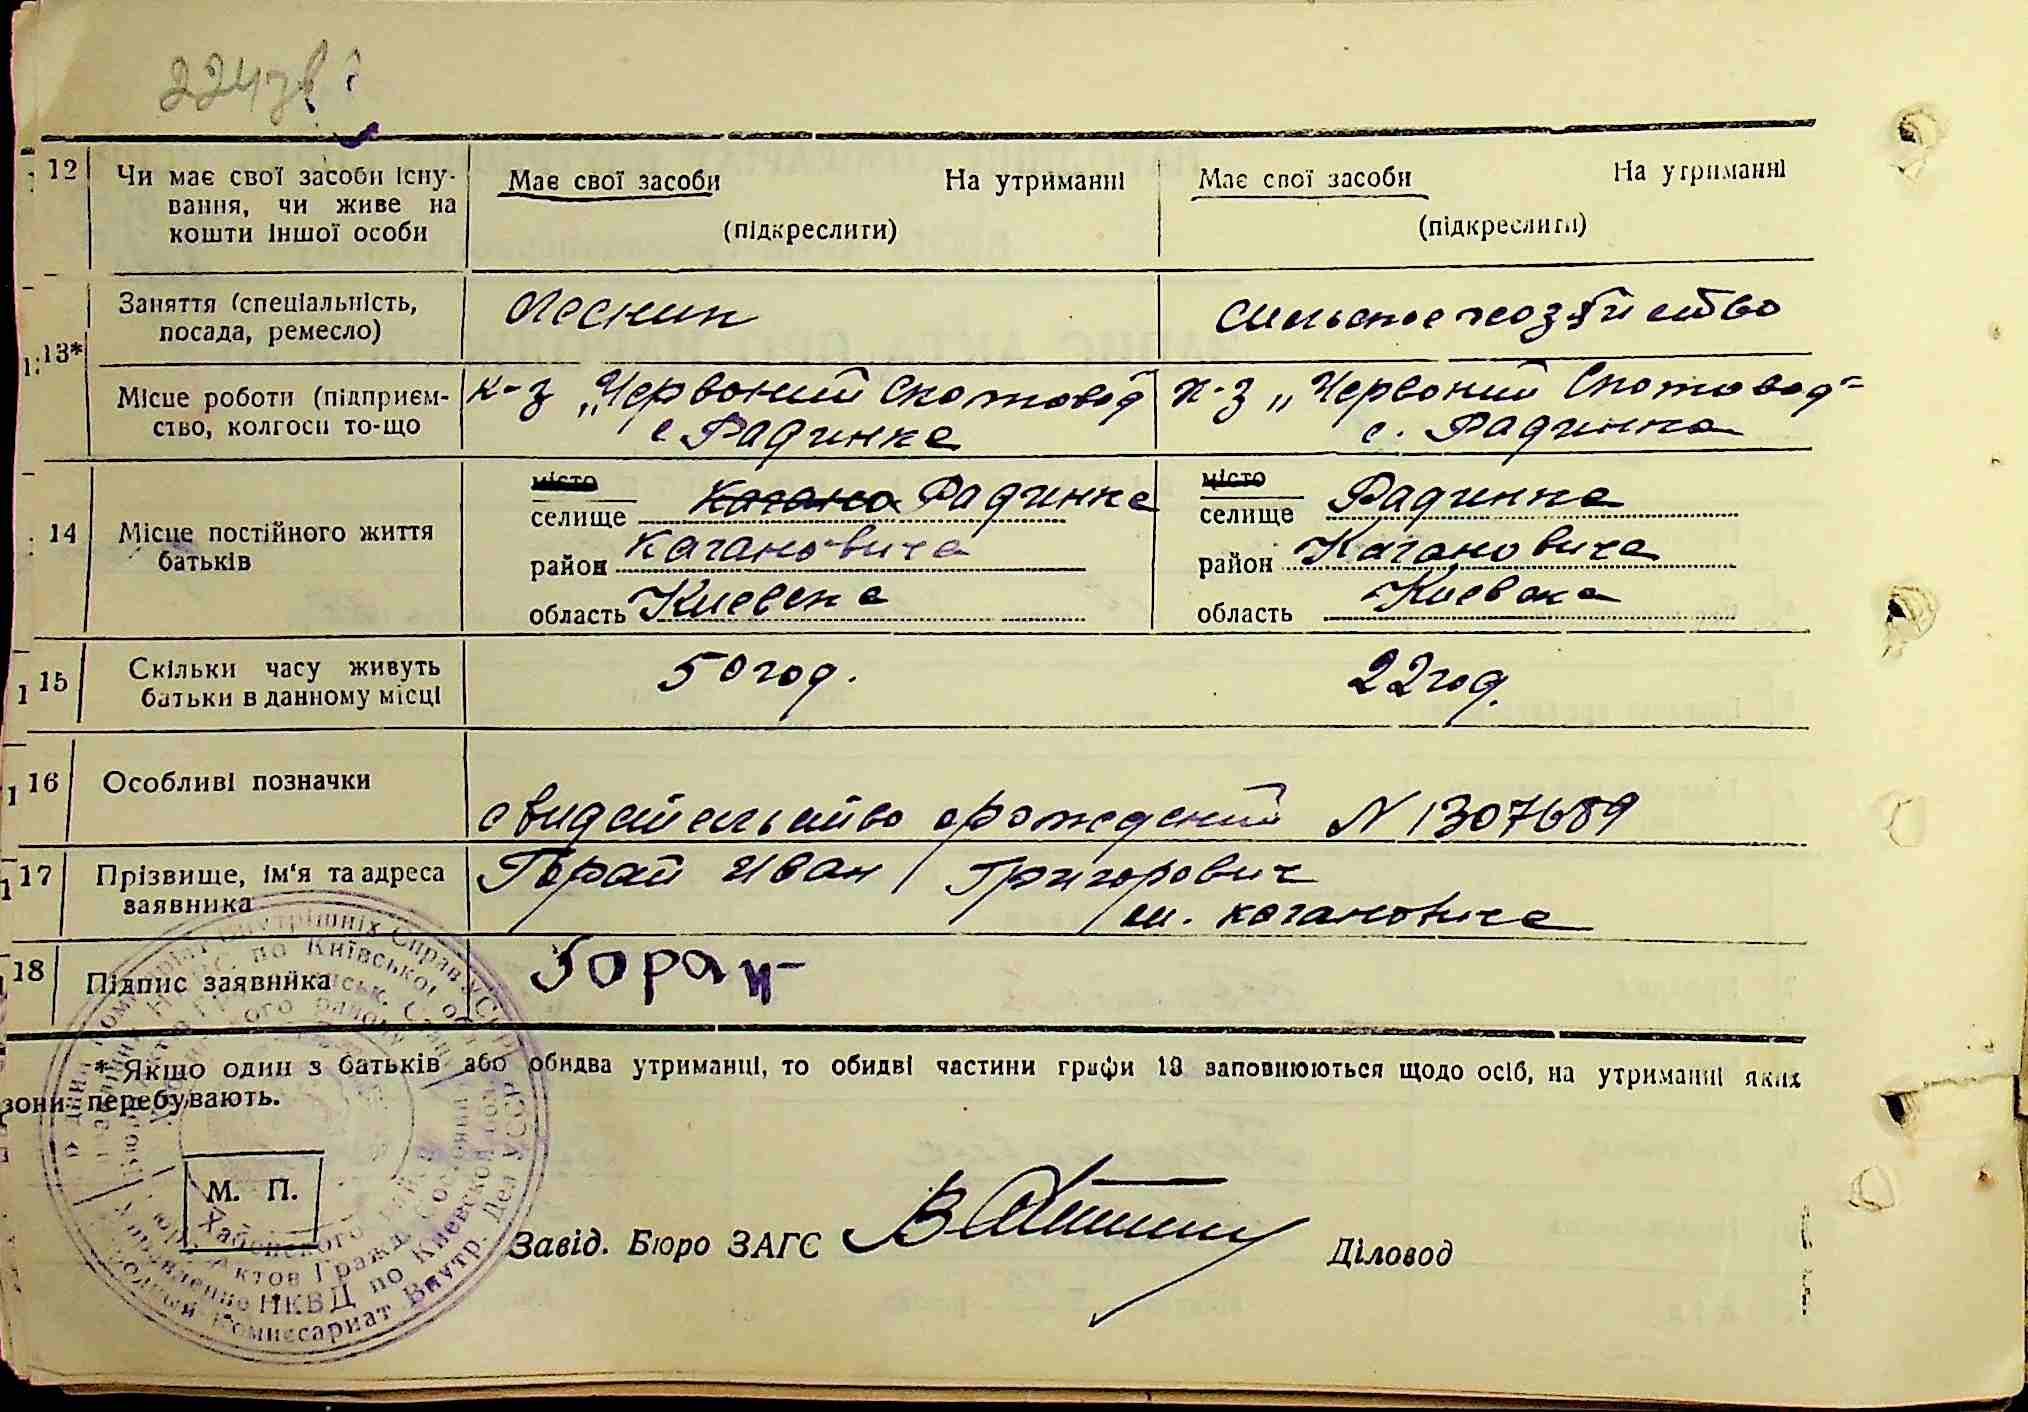 12 Чи має свої засоби існу-
вання, чи живе на
кошти іншої особи
Має свої засоби На утриманні
(підкреслити)
Має свої засоби На утриманні
(підкреслити)
13* Заняття (спеціальність,
посада, ремесло)
Лесник
сильское хозяйство
Місце роботи (підприєм-
ство, колгосп то-що
к-з „Червоний Скотовод
с Радинка
к-з „Червоний Скотовод"
с. Радинка
14 Місце постійного життя
батьків
місто
селище Радинка
район Кагановича
область Киевска
місто
селище Радинка
район Кагановича
область Киевска
15 Скільки часу живуть
батьки в данному місці
50 год.
22 год.
16 Особливі позначки
свидетельство орождений N 1307689
17 Прізвище, ім'я та адреса
заявника
Горай Иван Григорович
м. кагановича
18 Підпис заявника
Горай
* Якщо один з батьків або обидва утриманці, то обидві частини графи 13 заповнюються щодо осіб, на утриманні яких
вони перебувають.
М. П.
Завід. Бюро ЗАГС
Діловод